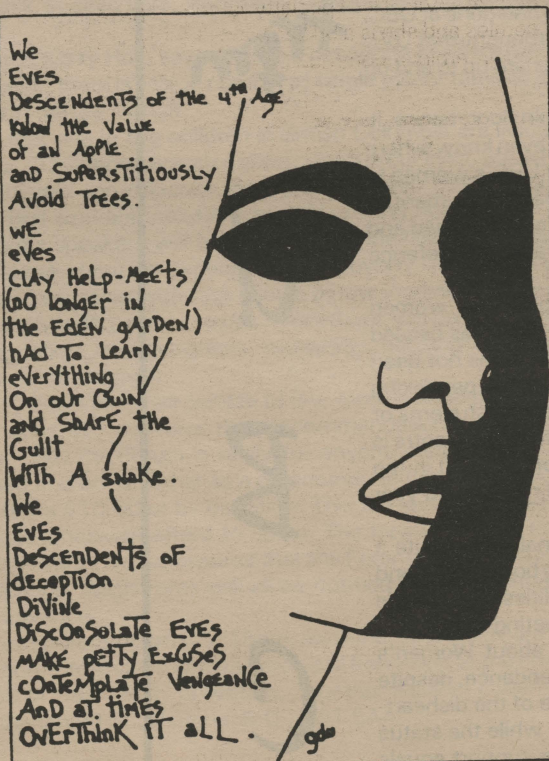 We
EVES
DESCENDENTS OF tHE 4th Age
KNOW the VALUE
OF AN APPLE
aND SUPERSTITIOUSLY
Avoid TREES.
WE
eVes
CLAY HELP-MEETS
(NO LONGER iN
tHE EDEN gArDeN)
hAD To LEARN
eVerYtHINg
On oUr OWN
and SbArE tHe
GuIlt
WITh A sNaKe.
We
EVEs
DeScENDENtS oF
dEcepTIon
DiViNe
DiScOnSoLaTe EVEs
mAKE pETTy ExCuSeS
cOnTeMpLaTe VeNgEANCe
AnD aT tIMEs
OvErThInK IT aLL.
gdw